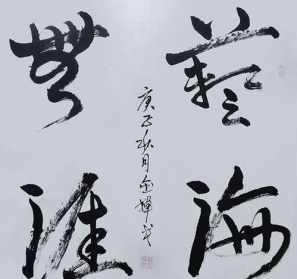 藝海
無涯
庚子秋月金輝書